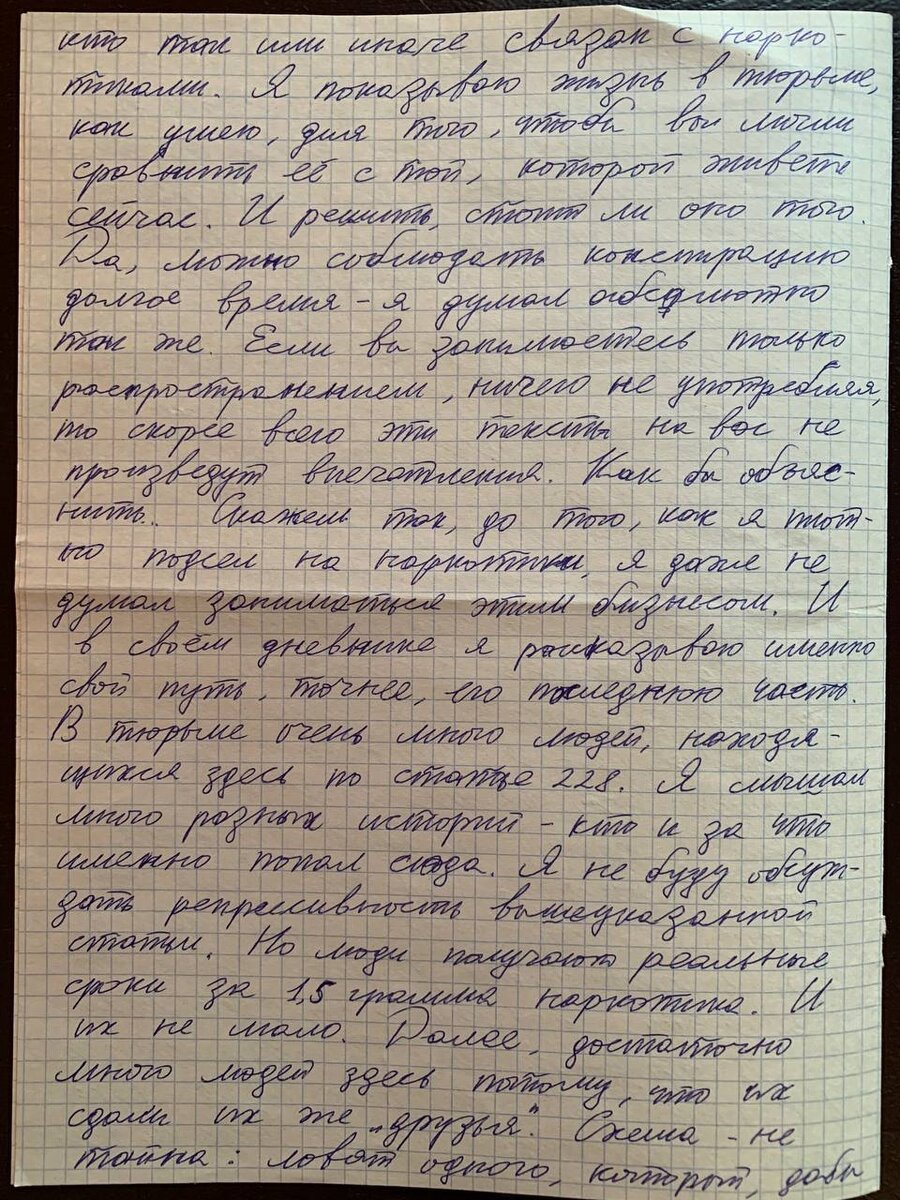 кто так или иначе связан с нарко-
тиками. Я показываю жизнь в тюрьме,
как умею, для того, чтобы вы могли
сравнить её с той, которой живете
сейчас. И решить, стоит ли оно того.
Да, можно соблюдать конспирацию
долгое время - я думал абсолютно
так же. Если вы занимаетесь только
распространением, ничего не употребляя,
то скорее всего эти тексты на вас не
произведут впечатления. Как бы объяс-
нить.. Скажем так, до того, как я плот-
но подсел на наркотики, я даже не
думал заниматься этим бизнесом. И
в своём дневнике я рассказываю именно
свой путь, точнее, его последнюю часть.
В тюрьме очень много людей, находя-
щихся здесь по статье 228. Я слышал
много разных историй - кто и за что
именно попал сюда. Я не буду обсуж-
дать репрессивность вышеуказанной
статьи. Но люди получают реальные
сроки за 1,5 грамма наркотика. И
их не мало. Далее, достаточно
много людей здесь потому, что их
сдали их же „друзья". Схема - не
тайна: ловят одного, который, дабы